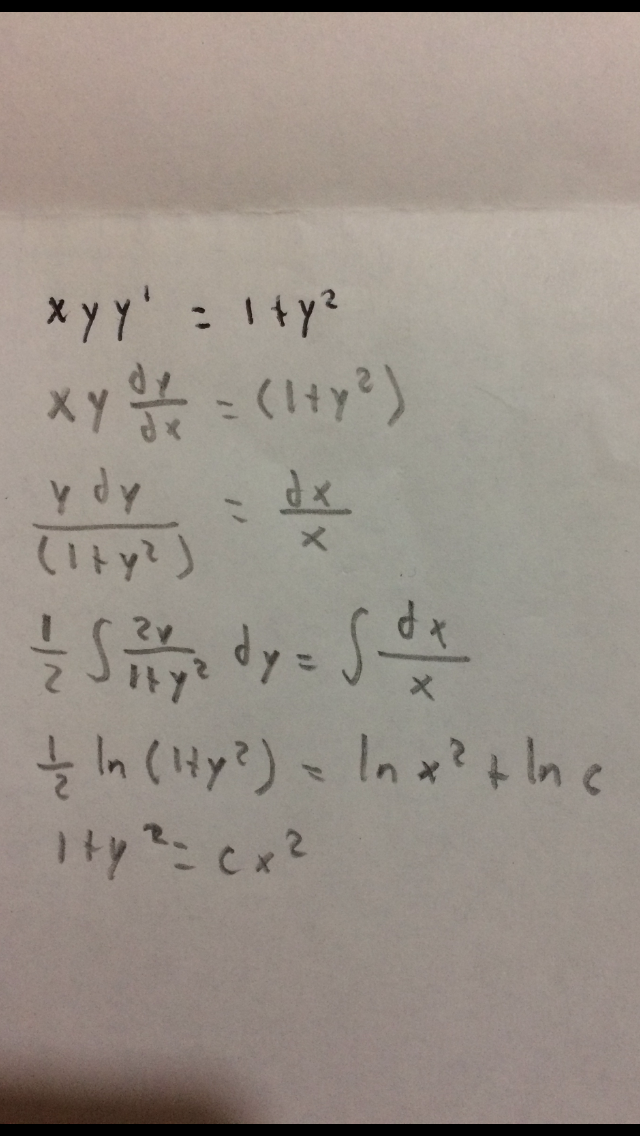 xyy' = 1+y²
xy dy/dx = (1+y²)
y dy/(1+y²) = dx/x
1/2 ∫ 2y/1+y² dy = ∫ dx/x
1/2 ln (1+y²) = ln x² + ln c
1+y² = cx²